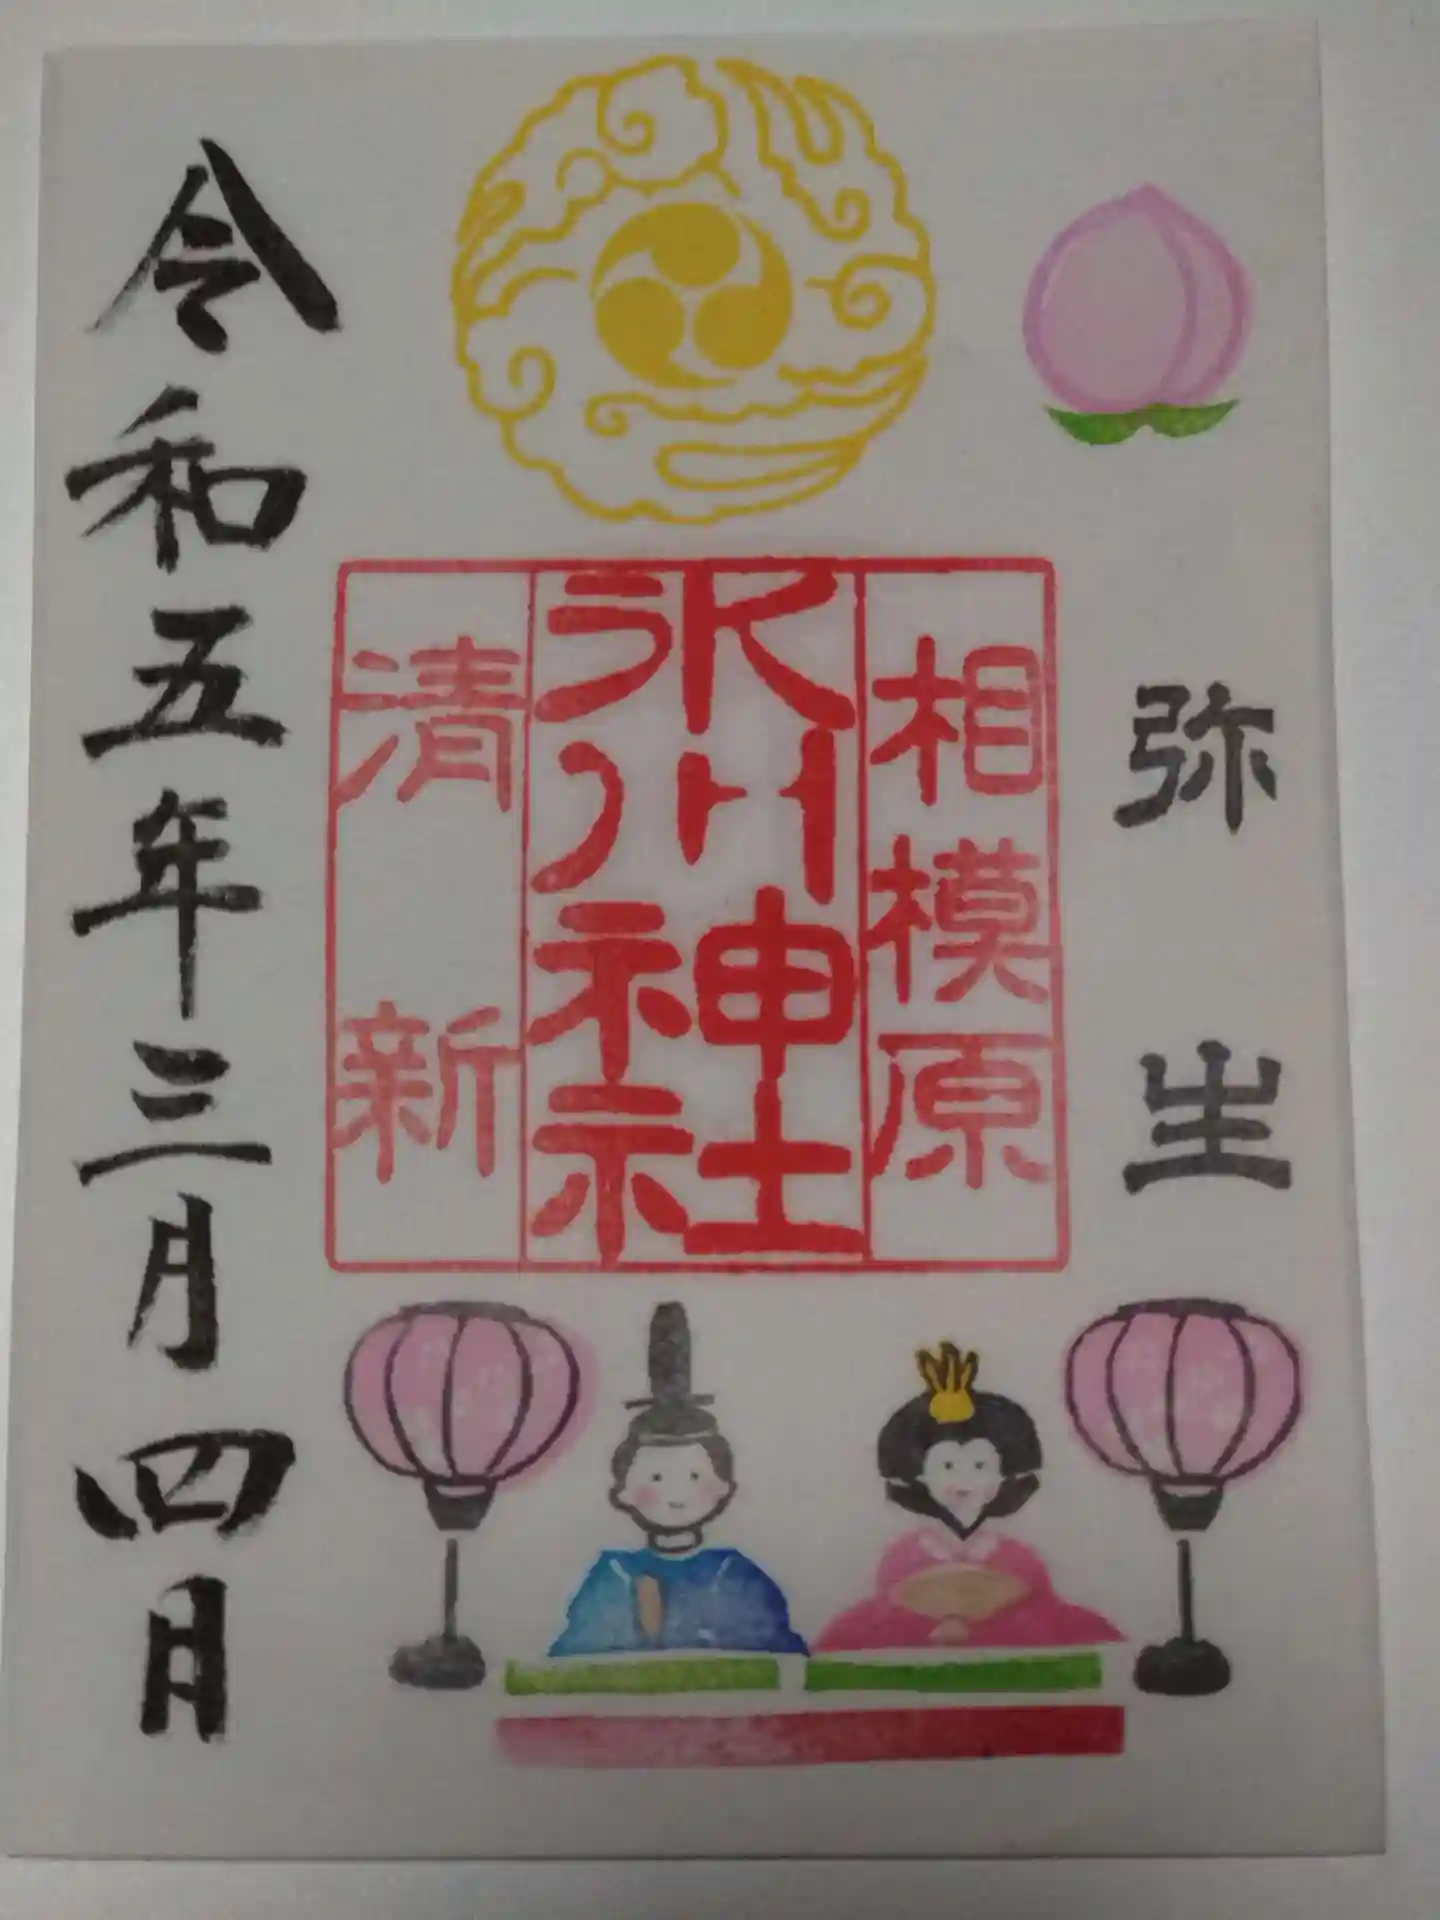 弥生
相模原
氷川神社
清新
令和五年三月四日